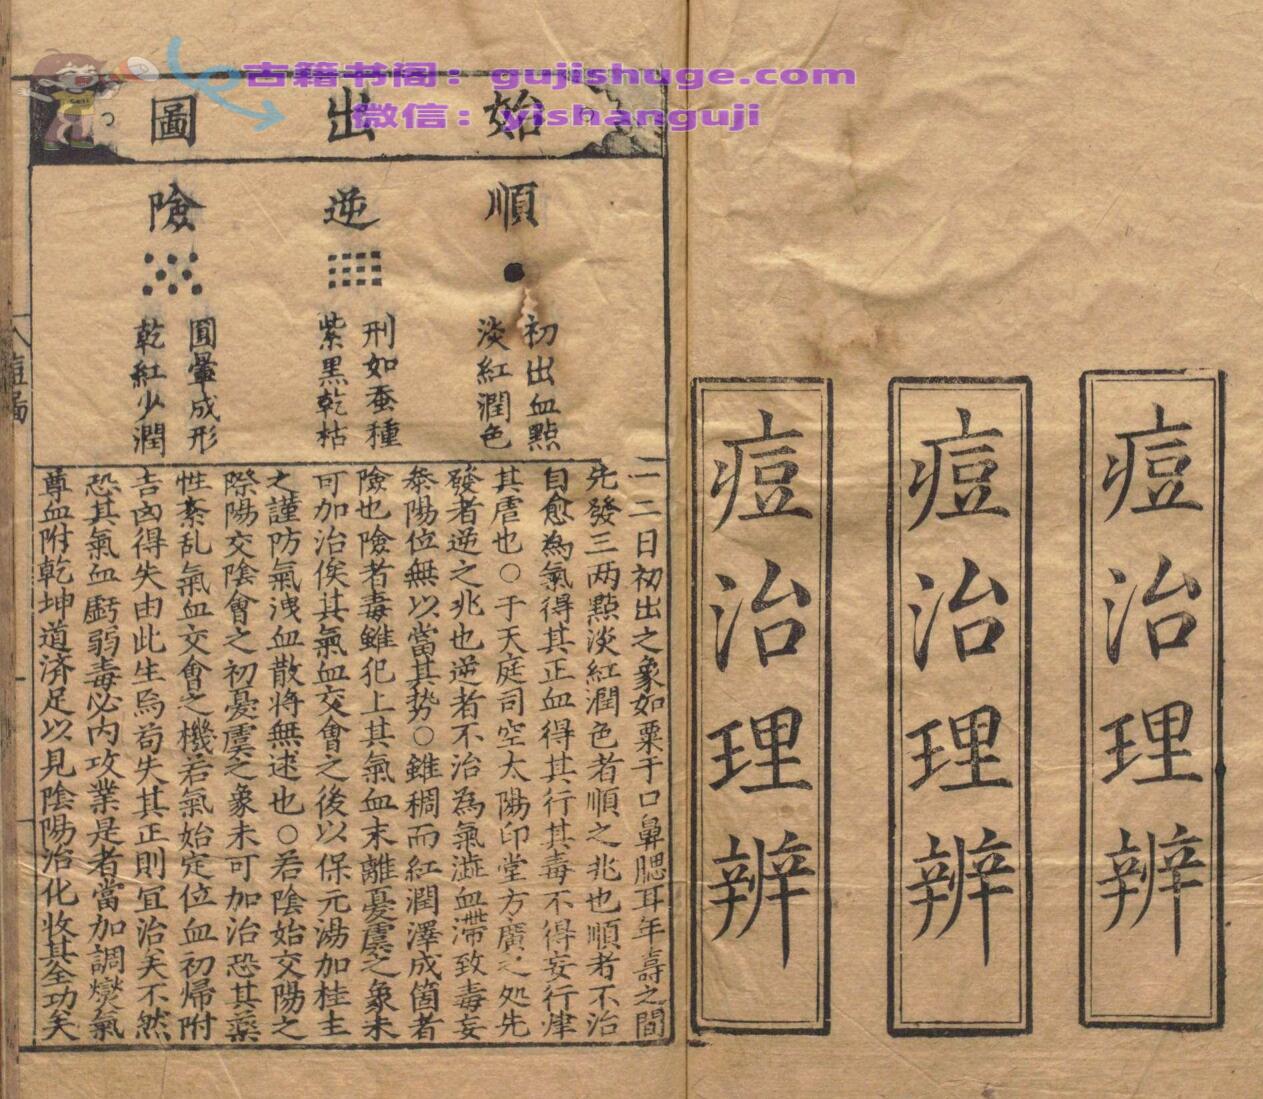 古籍书阁：gujishuge.com
微信：yishanguji
痘治理辨
痘治理辨
痘治理辨
始出圖
順
初出血點
淡紅潤色
逆
刑如蚕種
紫黑乾枯
險
圓暈成形
乾紅少潤
一二日初出之象如粟于口鼻腮耳年壽之間
先發三两點淡紅潤色者順之兆也順者不治
自愈為氣得其正血得其行其毒不得妄行肆
其虐也○于天庭司空太陽印堂方廣之処先
發者逆之兆也逆者不治為氣澁血滯致毒妄
叅陽位無以當其势○雖稠而紅潤澤成箇者
險也險者毒雖犯上其氣血未離憂虞之象未
可加治俟其氣血交會之後以保元湯加桂主
之謹防氣洩血散將無逮也○若陰始交陽之
際陽交陰會之初憂虞之象未可加治恐其藥
性紊乱氣血交會之機若氣始定位血初歸附
吉凶得失由此生焉苟失其正則宜治矣不然
恐其氣血虧弱毒必内攻業是者當加調燮氣
尊血附乾坤道済足以見陰陽治化收其全功矣